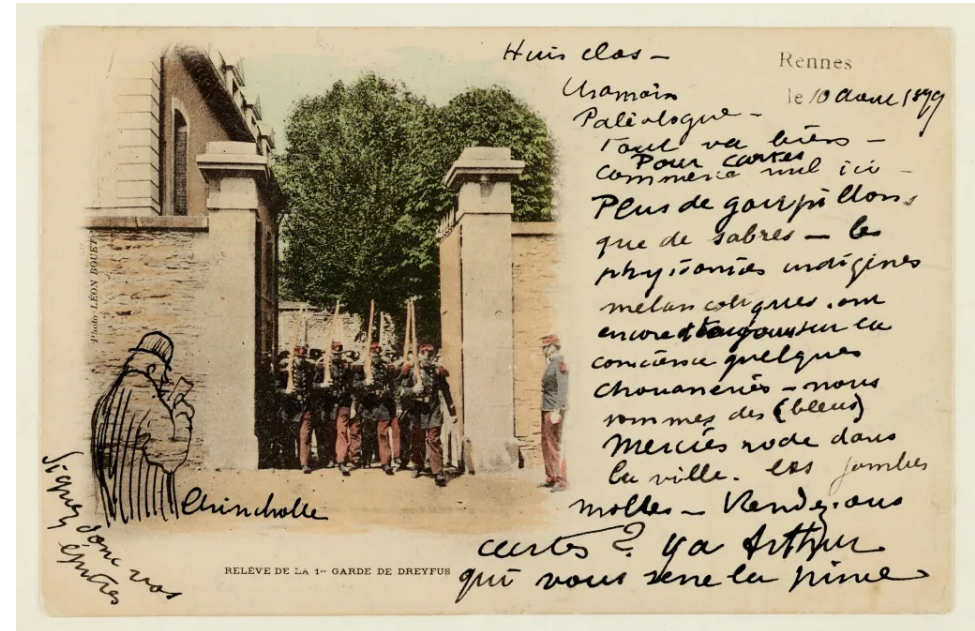 Huis clos -
Rennes
le 10 aout 1899
Chamoin
Paléologue -
Tout va bien -
Pour cartes
commerce nul ici -
Plus de goupillons
que de sabres - les
physionomies indigènes
mélancoliques. ont
encore toujours sur la
conscience quelques
chouaneries - nous
sommes des (bleus)
Mercier rode dans
la ville. les jambes
molles - Rendez-vous
cartes? Ya Arthur
qui vous serre la pince
Photo LÉON BOUET
Chincholle
Signez donc vos
épitres
RELÈVE DE LA 1re GARDE DE DREYFUS